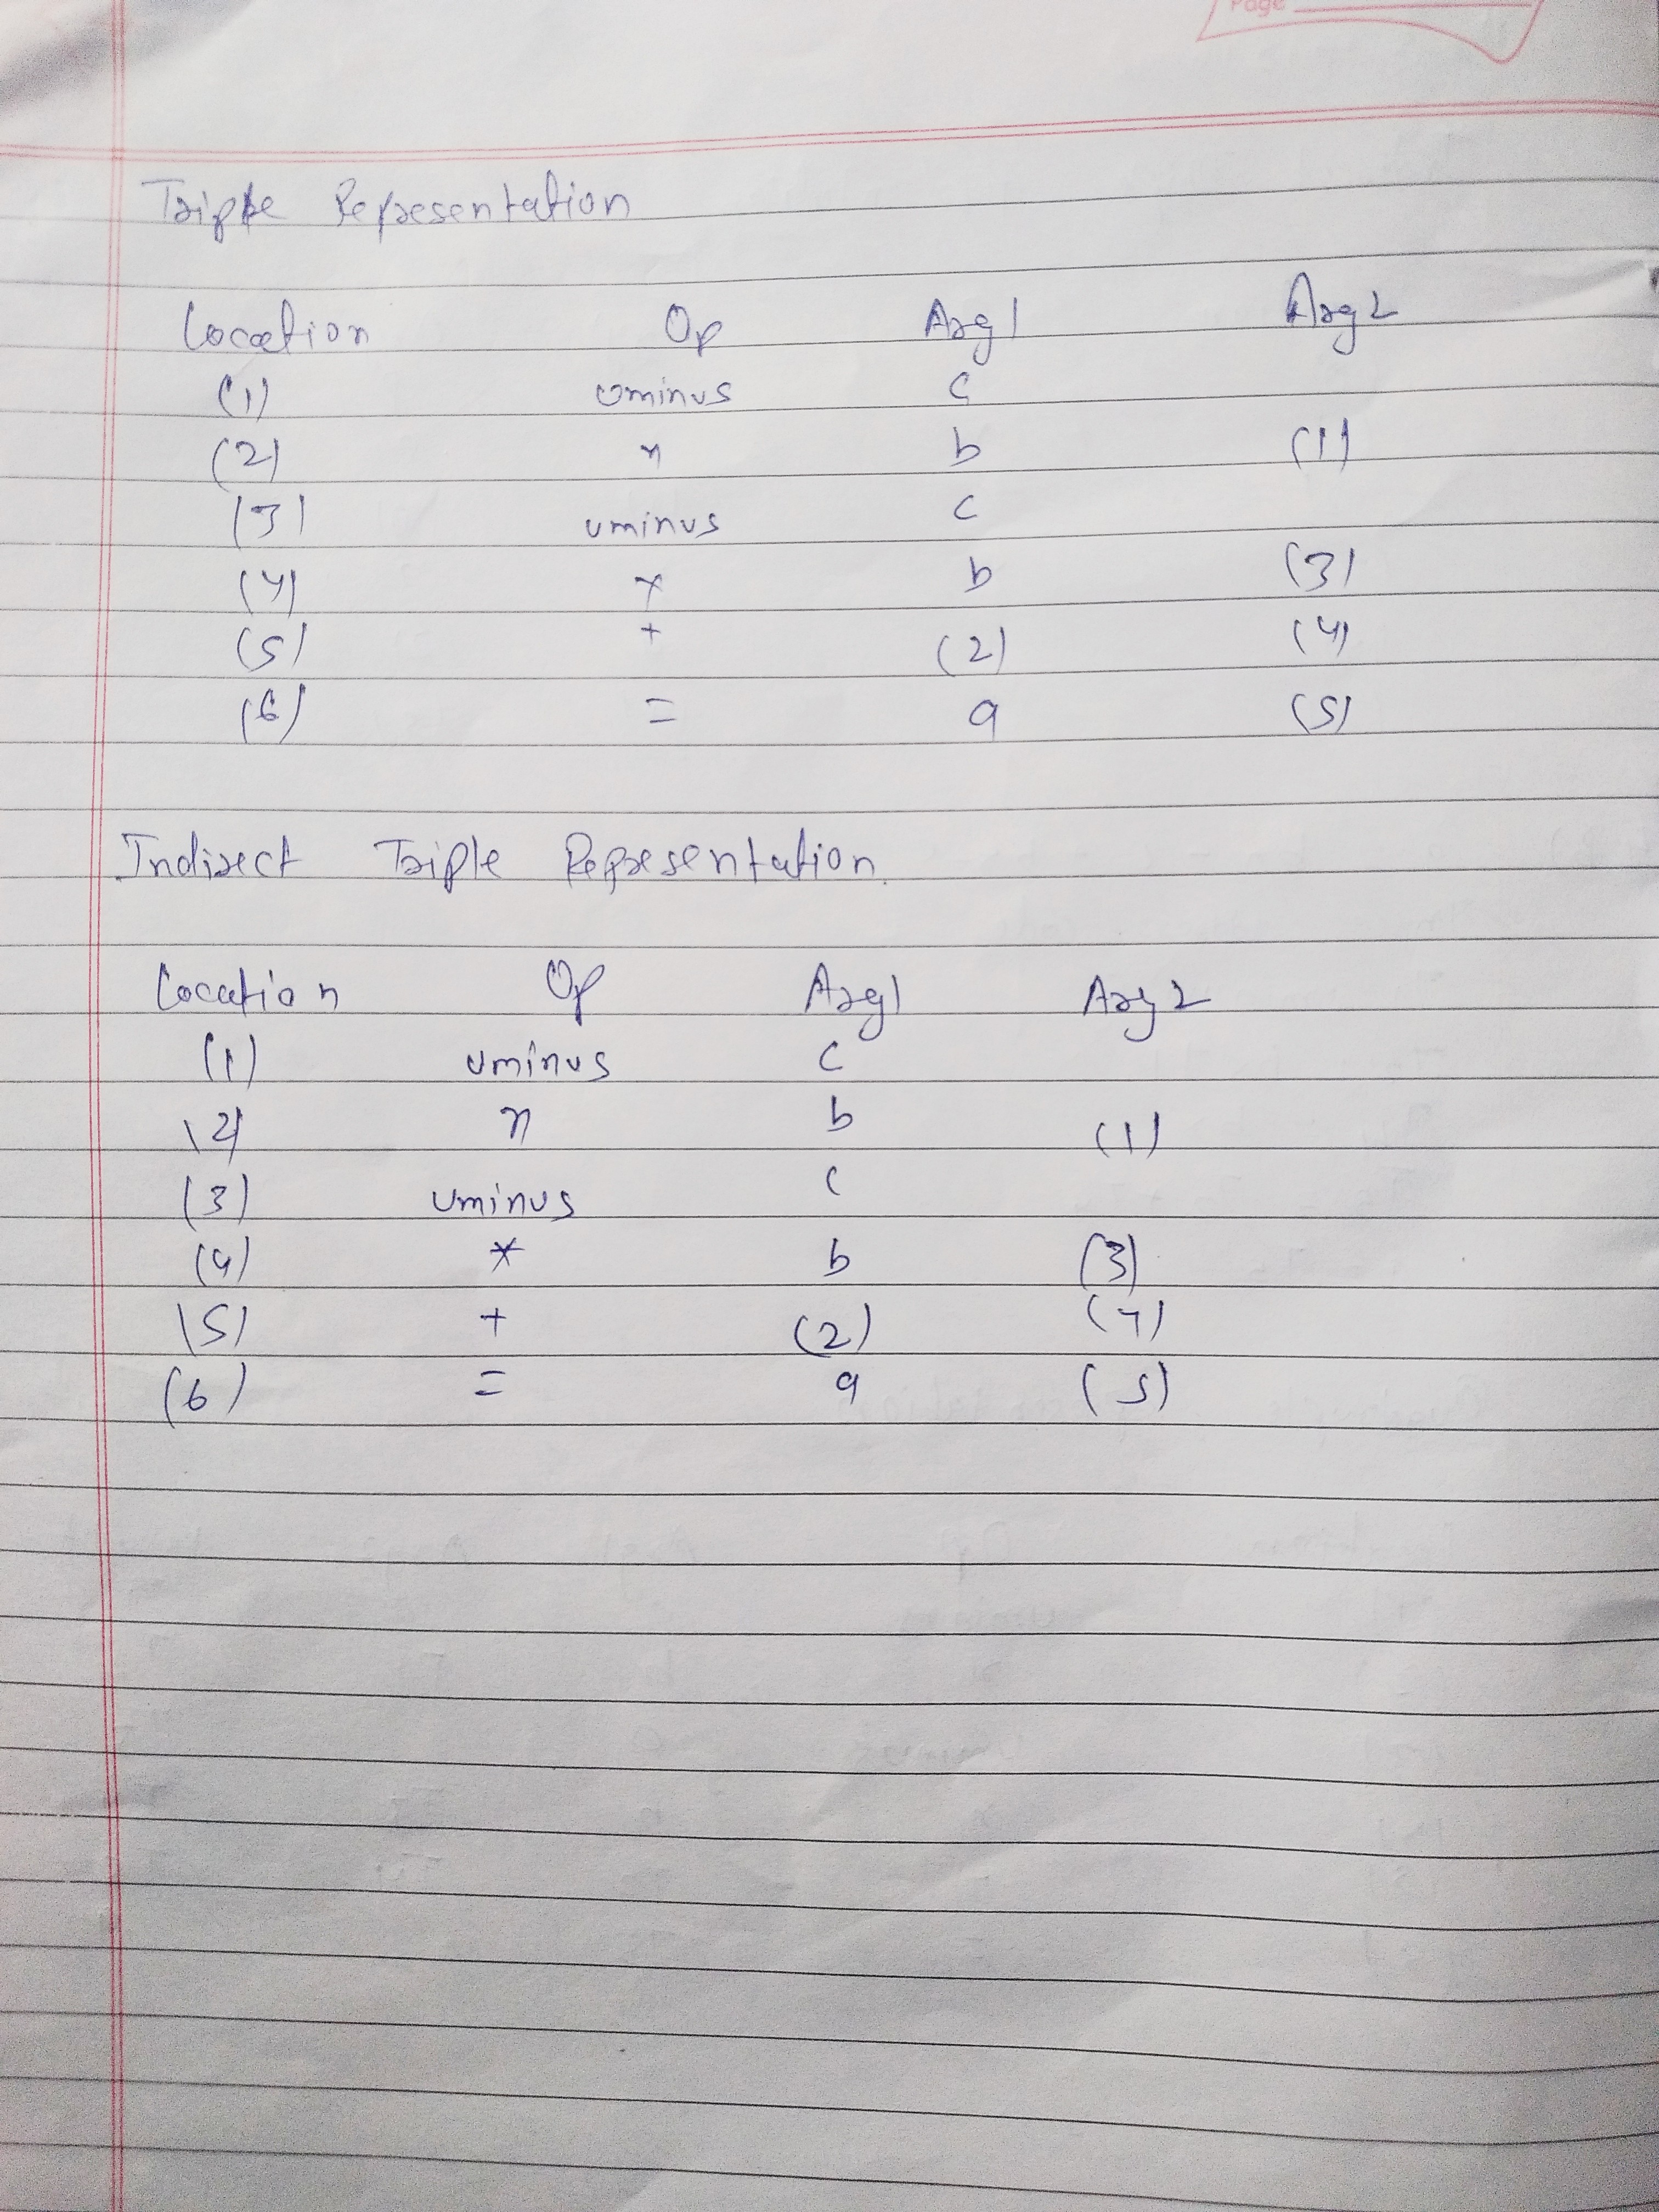 Page
Triple Representation
Location Op Arg1 Arg2
(1) uminus c
(2) x b (1)
(3) uminus c
(4) x b (3)
(5) + (2) (4)
(6) = a (5)
Indirect Triple Representation.
Location Op Arg1 Arg2
(1) uminus c
(2) x b (1)
(3) uminus c
(4) * b (3)
(5) + (2) (4)
(6) = a (5)